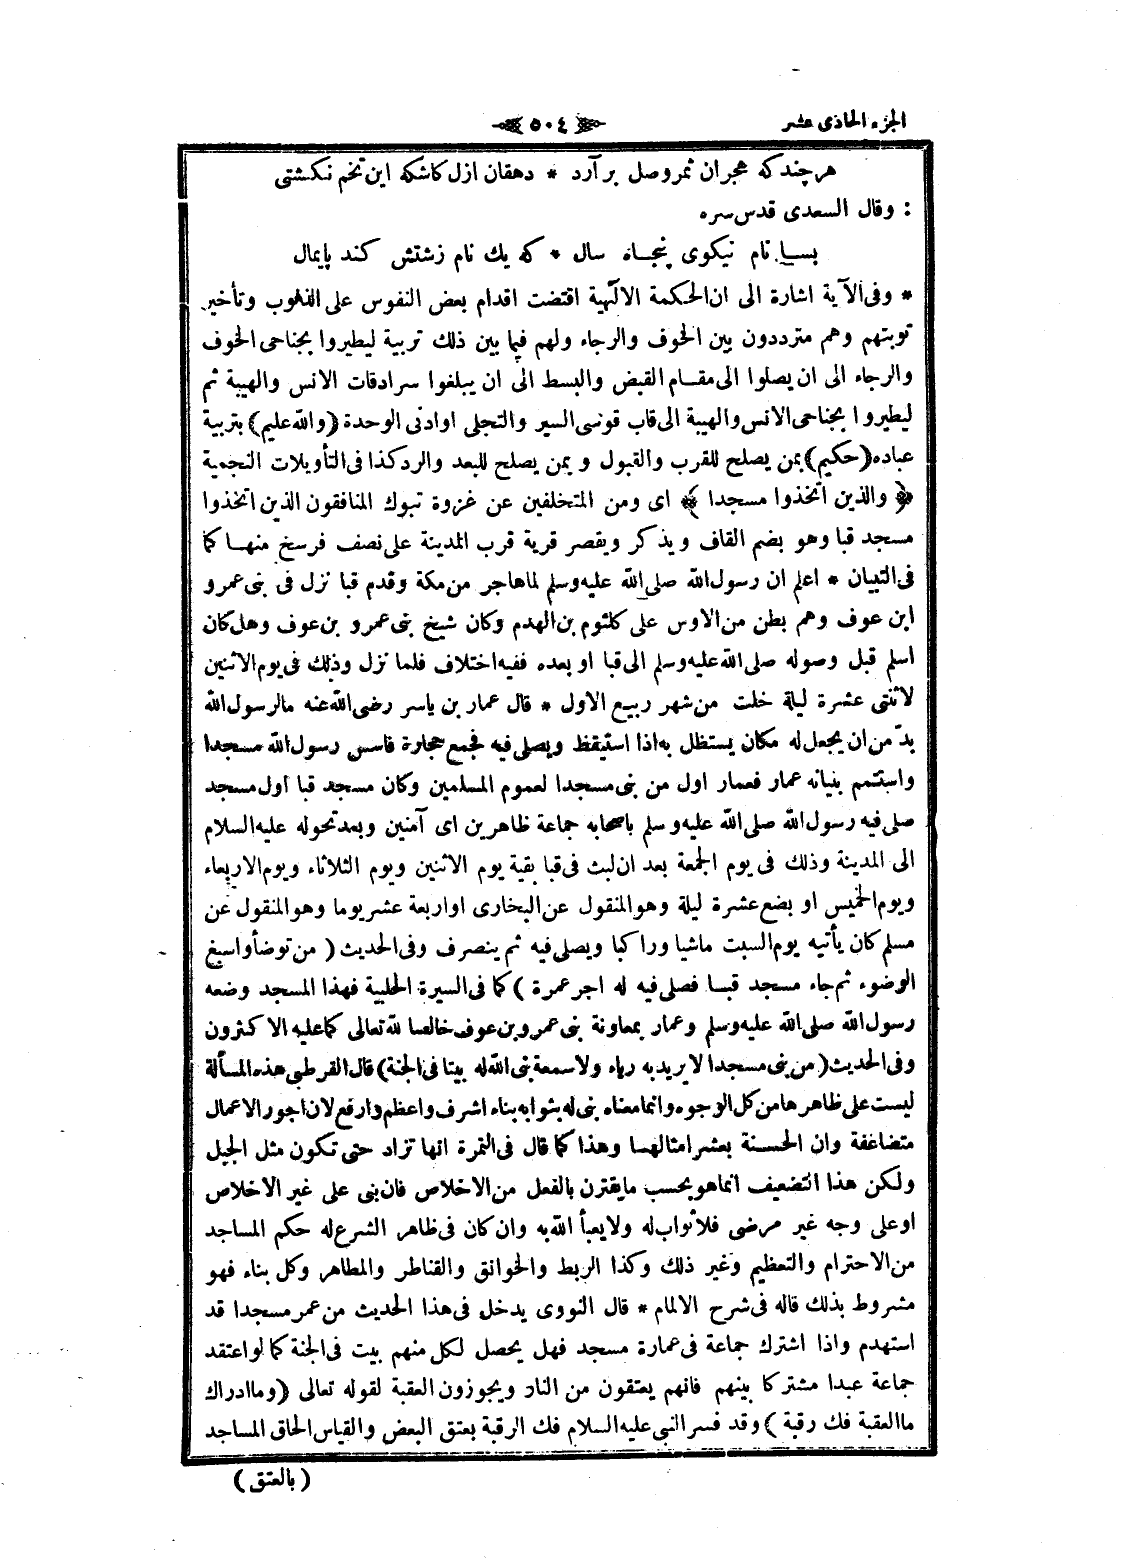 الجزء الحادى عشر
٥٠٤
هر چند كه هجران ثمر وصل بر آرد * دهقان ازل كاشكه اين تخم نكشتى
: وقال السعدى قدس سره
بسا نام نيكوى پنجاه سال * كه يك نام زشتش كند پايمال
* وفى الآية اشارة الى ان الحكمة الالهية اقتضت اقدام بعض النفوس على الذنوب وتأخير
توبتهم وهم مترددون بين الخوف والرجاء ولهم فيما بين ذلك تربية ليطيروا بجناحى الخوف
والرجاء الى ان يصلوا الى مقام القبض والبسط الى ان يبلغوا سرادقات الانس والهيبة ثم
ليطيروا بجناحى الانس والهيبة الى قاب قوسى السير والتجلى او ادنى الوحدة (والله عليم) بتربية
عباده (حكيم) بمن يصلح للقرب والقبول و بمن يصلح للبعد والرد كذا فى التأويلات النجمية
﴿ والذين اتخذوا مسجدا ﴾ اى ومن المتخلفين عن غزوة تبوك المنافقون الذين اتخذوا
مسجد قبا وهو بضم القاف ويذكر ويقصر قرية قرب المدينة على نصف فرسخ منها كما
فى التبيان * اعلم ان رسول الله صلى الله عليه وسلم لما هاجر من مكة وقدم قبا نزل فى بنى عمرو
ابن عوف وهم بطن من الاوس على كلثوم بن الهدم وكان شيخ بنى عمرو بن عوف وهل كان
اسلم قبل وصوله صلى الله عليه وسلم الى قبا او بعده ففيه اختلاف فلما نزل وذلك فى يوم الاثنين
لاثنتى عشرة ليلة خلت من شهر ربيع الاول * قال عمار بن ياسر رضى الله عنه مالرسول الله
بدّ من ان يجعل له مكان يستظل به اذا استيقظ ويصلى فيه فجمع حجارة فاسس رسول الله مسجدا
واستتم بنيانه عمار فعمار اول من بنى مسجدا لعموم المسلمين وكان مسجد قبا اول مسجد
صلى فيه رسول الله صلى الله عليه وسلم باصحابه جماعة ظاهرين اى آمنين وبعد تحوله عليه السلام
الى المدينة وذلك فى يوم الجمعة بعد ان لبث فى قبا بقية يوم الاثنين ويوم الثلاثاء ويوم الاربعاء
ويوم الخميس او بضع عشرة ليلة وهو المنقول عن البخارى او اربعة عشر يوما وهو المنقول عن
مسلم كان يأتيه يوم السبت ماشيا وراكبا ويصلى فيه ثم ينصرف وفى الحديث ( من توضأ واسبغ
الوضوء ثم جاء مسجد قبا فصلى فيه له اجر عمرة ) كما فى السيرة الحلبية فهذا المسجد وضعه
رسول الله صلى الله عليه وسلم وعمار بمعاونة بنى عمرو بن عوف خالصا لله تعالى كما عليه الاكثرون
وفى الحديث ( من بنى مسجدا لا يريد به رياء ولا سمعة بنى الله له بيتا فى الجنة ) قال القرطبى هذه المسألة
ليست على ظاهرها من كل الوجوه وانما معناه بنى له بثوابه بناء اشرف واعظم وارفع لان اجور الاعمال
متضاعفة وان الحسنة بعشر امثالها وهذا كما قال فى التمرة انها تزاد حتى تكون مثل الجبل
ولكن هذا التضعيف انما هو بحسب ما يقترن بالفعل من الاخلاص فان بنى على غير الاخلاص
او على وجه غير مرضى فلا ثواب له ولا يعبأ الله به وان كان فى ظاهر الشرع له حكم المساجد
من الاحترام والتعظيم وغير ذلك وكذا الربط والخوانق والقناطر والمطاهر وكل بناء فهو
مشروط بذلك قاله فى شرح الالمام * قال النووى يدخل فى هذا الحديث من عمر مسجدا قد
استهدم واذا اشترك جماعة فى عمارة مسجد فهل يحصل لكل منهم بيت فى الجنة كما لو اعتقد
جماعة عبدا مشتركا بينهم فانهم يعتقون من النار ويجوزون العقبة لقوله تعالى ( وما ادراك
ما العقبة فك رقبة ) وقد فسر النبى عليه السلام فك الرقبة بعتق البعض والقياس الحاق المساجد
( بالعتق )